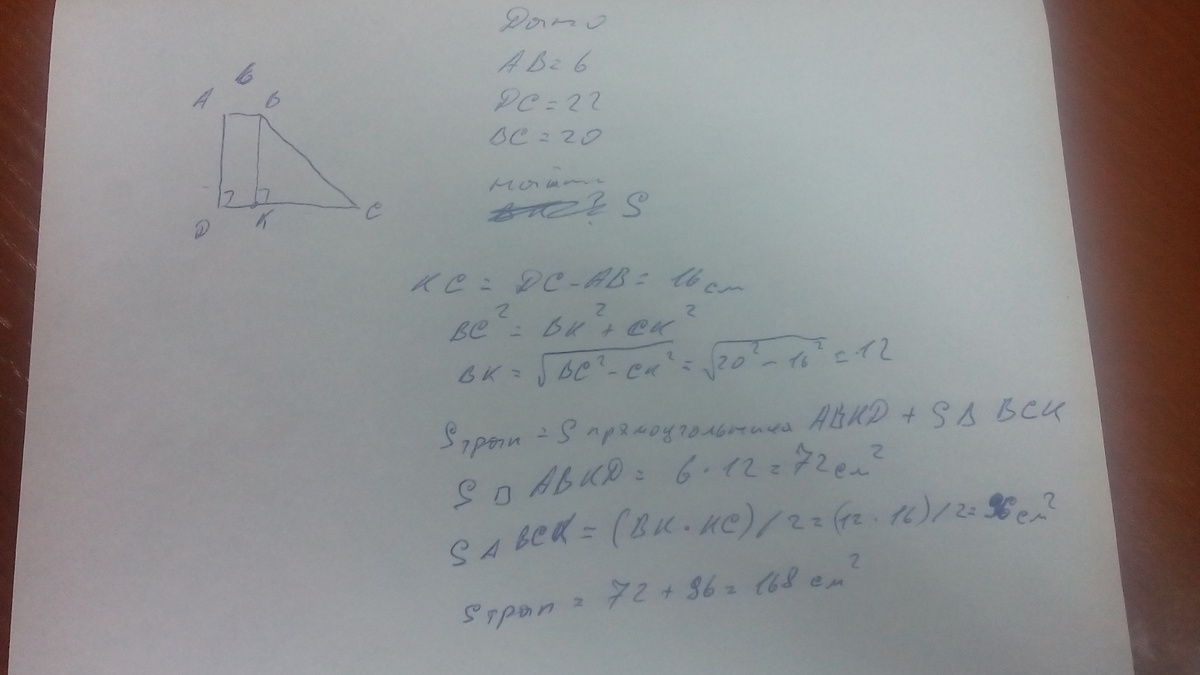 Дано
AB = 6
DC = 22
BC = 20
найти
S
6
A B
D K C
KC = DC - AB = 16 см
BC² = BK² + CK²
BK = √BC² - CK² = √20² - 16² = 12
Sтрап = S прямоугольника ABKD + S∆ BCK
S □ ABKD = 6 · 12 = 72 см²
S ∆ BCK = (BK · KC) / 2 = (12 · 16) / 2 = 96 см²
Sтрап = 72 + 96 = 168 см²